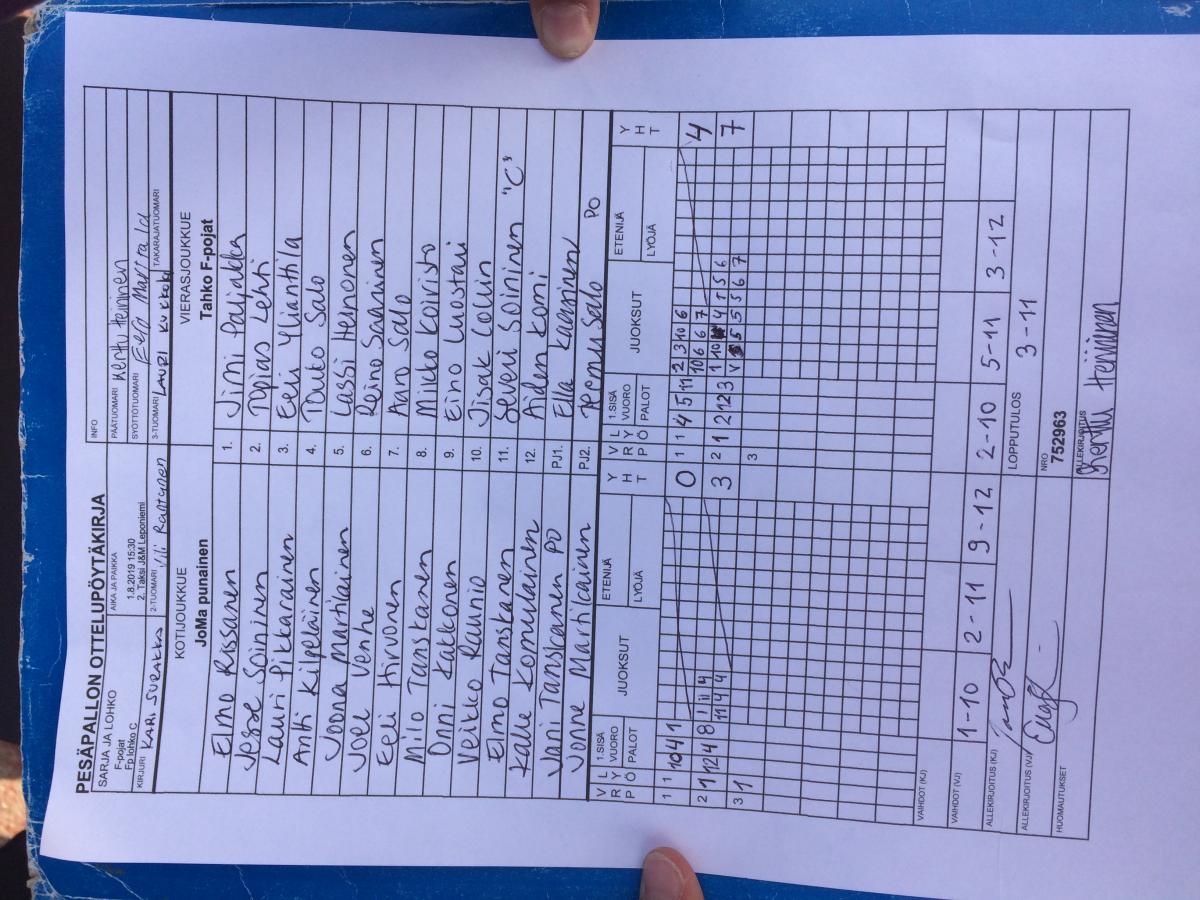 PESÄPALLON OTTELUPÖYTÄKIRJA
SARJA JA LOHKO
F-pojat
Fp lohko C
AIKA JA PAIKKA
1.8.2019 15:30
2. Taksi J&M Leponiemi
INFO
PÄÄTUOMARI Kerttu Heininen
SYÖTTÖTUOMARI Eero
KIRJURI KARI SURAKKA
2-TUOMARI Vili
3-TUOMARI LAURI
TAKARAJATUOMARI
KOTIJOUKKUE
JoMa punainen
VIERASJOUKKUE
Tahko F-pojat
Elmo Rissanen 1. Jimi Paljakka
Jesse Soininen 2. Topias Lehti
Lauri Pikkarainen 3. Eeli Ylianttila
Antti Kilpeläinen 4. Touko Salo
Joona Martilainen 5. Lassi Heinonen
Joel Venhe 6. Reino Saarinen
Eeli Hirvonen 7. Aaro Salo
Milo Tanskanen 8. Miikko Koiristo
Onni Kakkonen 9. Eino Luostari
Veikko Raunio 10. Iisak Colin
Elmo Tanskanen 11. Severi Soininen "C"
Kalle Komulainen 12. Aiden Komi
Jani Tanskanen PO PJ1. Ella
Jonne Martilainen PJ2. Teemu Salo PO
VRO LYÖ 1.SISÄ VUORO PALOT JUOKSUT ETENIJÄ LYÖJÄ YHT
VRO LYÖ 1.SISÄ VUORO PALOT JUOKSUT ETENIJÄ LYÖJÄ YHT
1 1 10 4 1 0
1 1 4 5 11 2 3 10 6 4
10 6 6 7
2 1 12 4 8 1 11 4 3
11 4 4
2 1 2 12 3 1 10 4 1 5 6 7
V 5 5 6 7
3 1
3
VAIHDOT (KJ)
VAIHDOT (VJ) 1-10 2-11 9-12 2-10 5-11 3-12
ALLEKIRJOITUS (KJ)
LOPPUTULOS 3-11
ALLEKIRJOITUS (VJ)
NRO
752963
HUOMAUTUKSET
ALLEKIRJOITUS
Kerttu Heininen